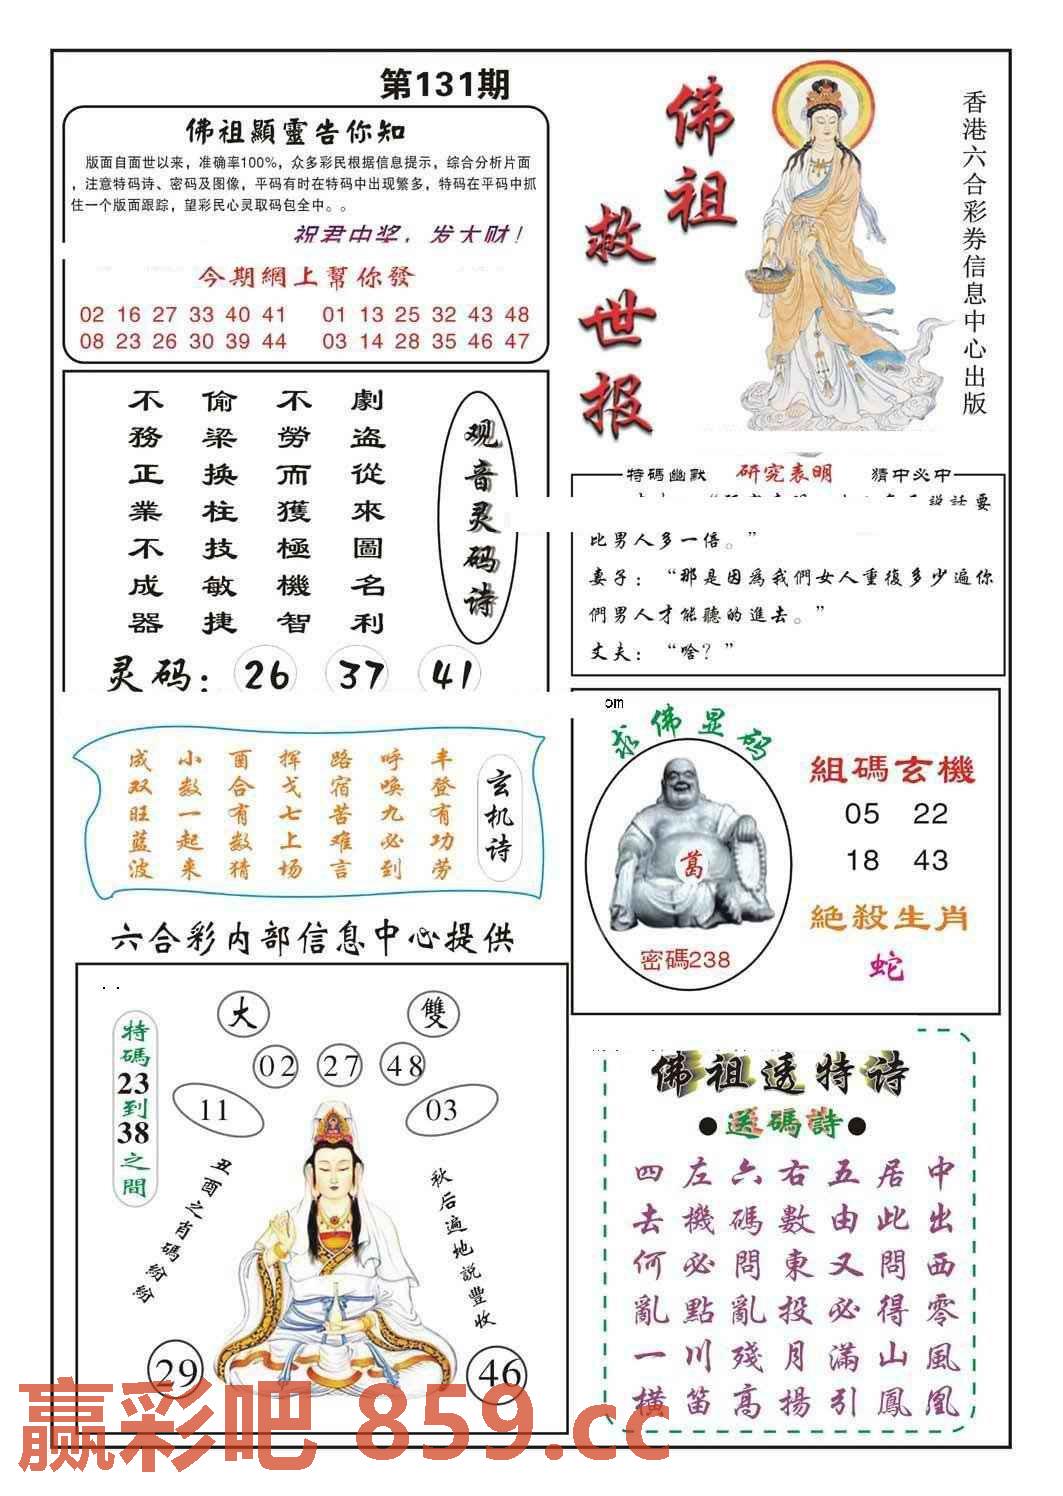 第131期
佛祖顯靈告你知
版面自面世以来，准确率100%，众多彩民根据信息提示，综合分析片面
，注意特码诗、密码及图像，平码有时在特码中出现繁多，特码在平码中抓
住一个版面跟踪，望彩民心灵取码包全中。。
祝君中奖，发大财！
今期網上幫你發
02 16 27 33 40 41 01 13 25 32 43 48
08 23 26 30 39 44 03 14 28 35 46 47
佛祖
救世报
香港六合彩券信息中心出版
观音灵码诗
劇盗從來圖名利
不勞而獲極機智
偷梁换柱技敏捷
不務正業不成器
灵码：26 37 41
特碼幽默 研究表明 猜中必中
説話要
比男人多一倍。”
妻子：“那是因爲我們女人重復多少遍你
們男人才能聽的進去。”
丈夫：“啥？”
om
求佛显码
葛
密碼238
組碼玄機
05 22
18 43
絶殺生肖
蛇
玄机诗
丰登有功劳
呼唤九必到
路宿苦难言
挥戈七上场
酉合有数猜
小数一起来
成双旺蓝波
六合彩内部信息中心提供
特碼23到38之間
大
雙
02 27 48
11
03
丑酉之肖碼紛紛
秋后遍地説豐收
29
46
佛祖透特诗
●送碼詩●
中出西零風凰
居此問得山鳳
五由又必滿引
右數東投月揚
六碼問亂殘高
左機必點川笛
四去何亂一横
赢彩吧 859.cc